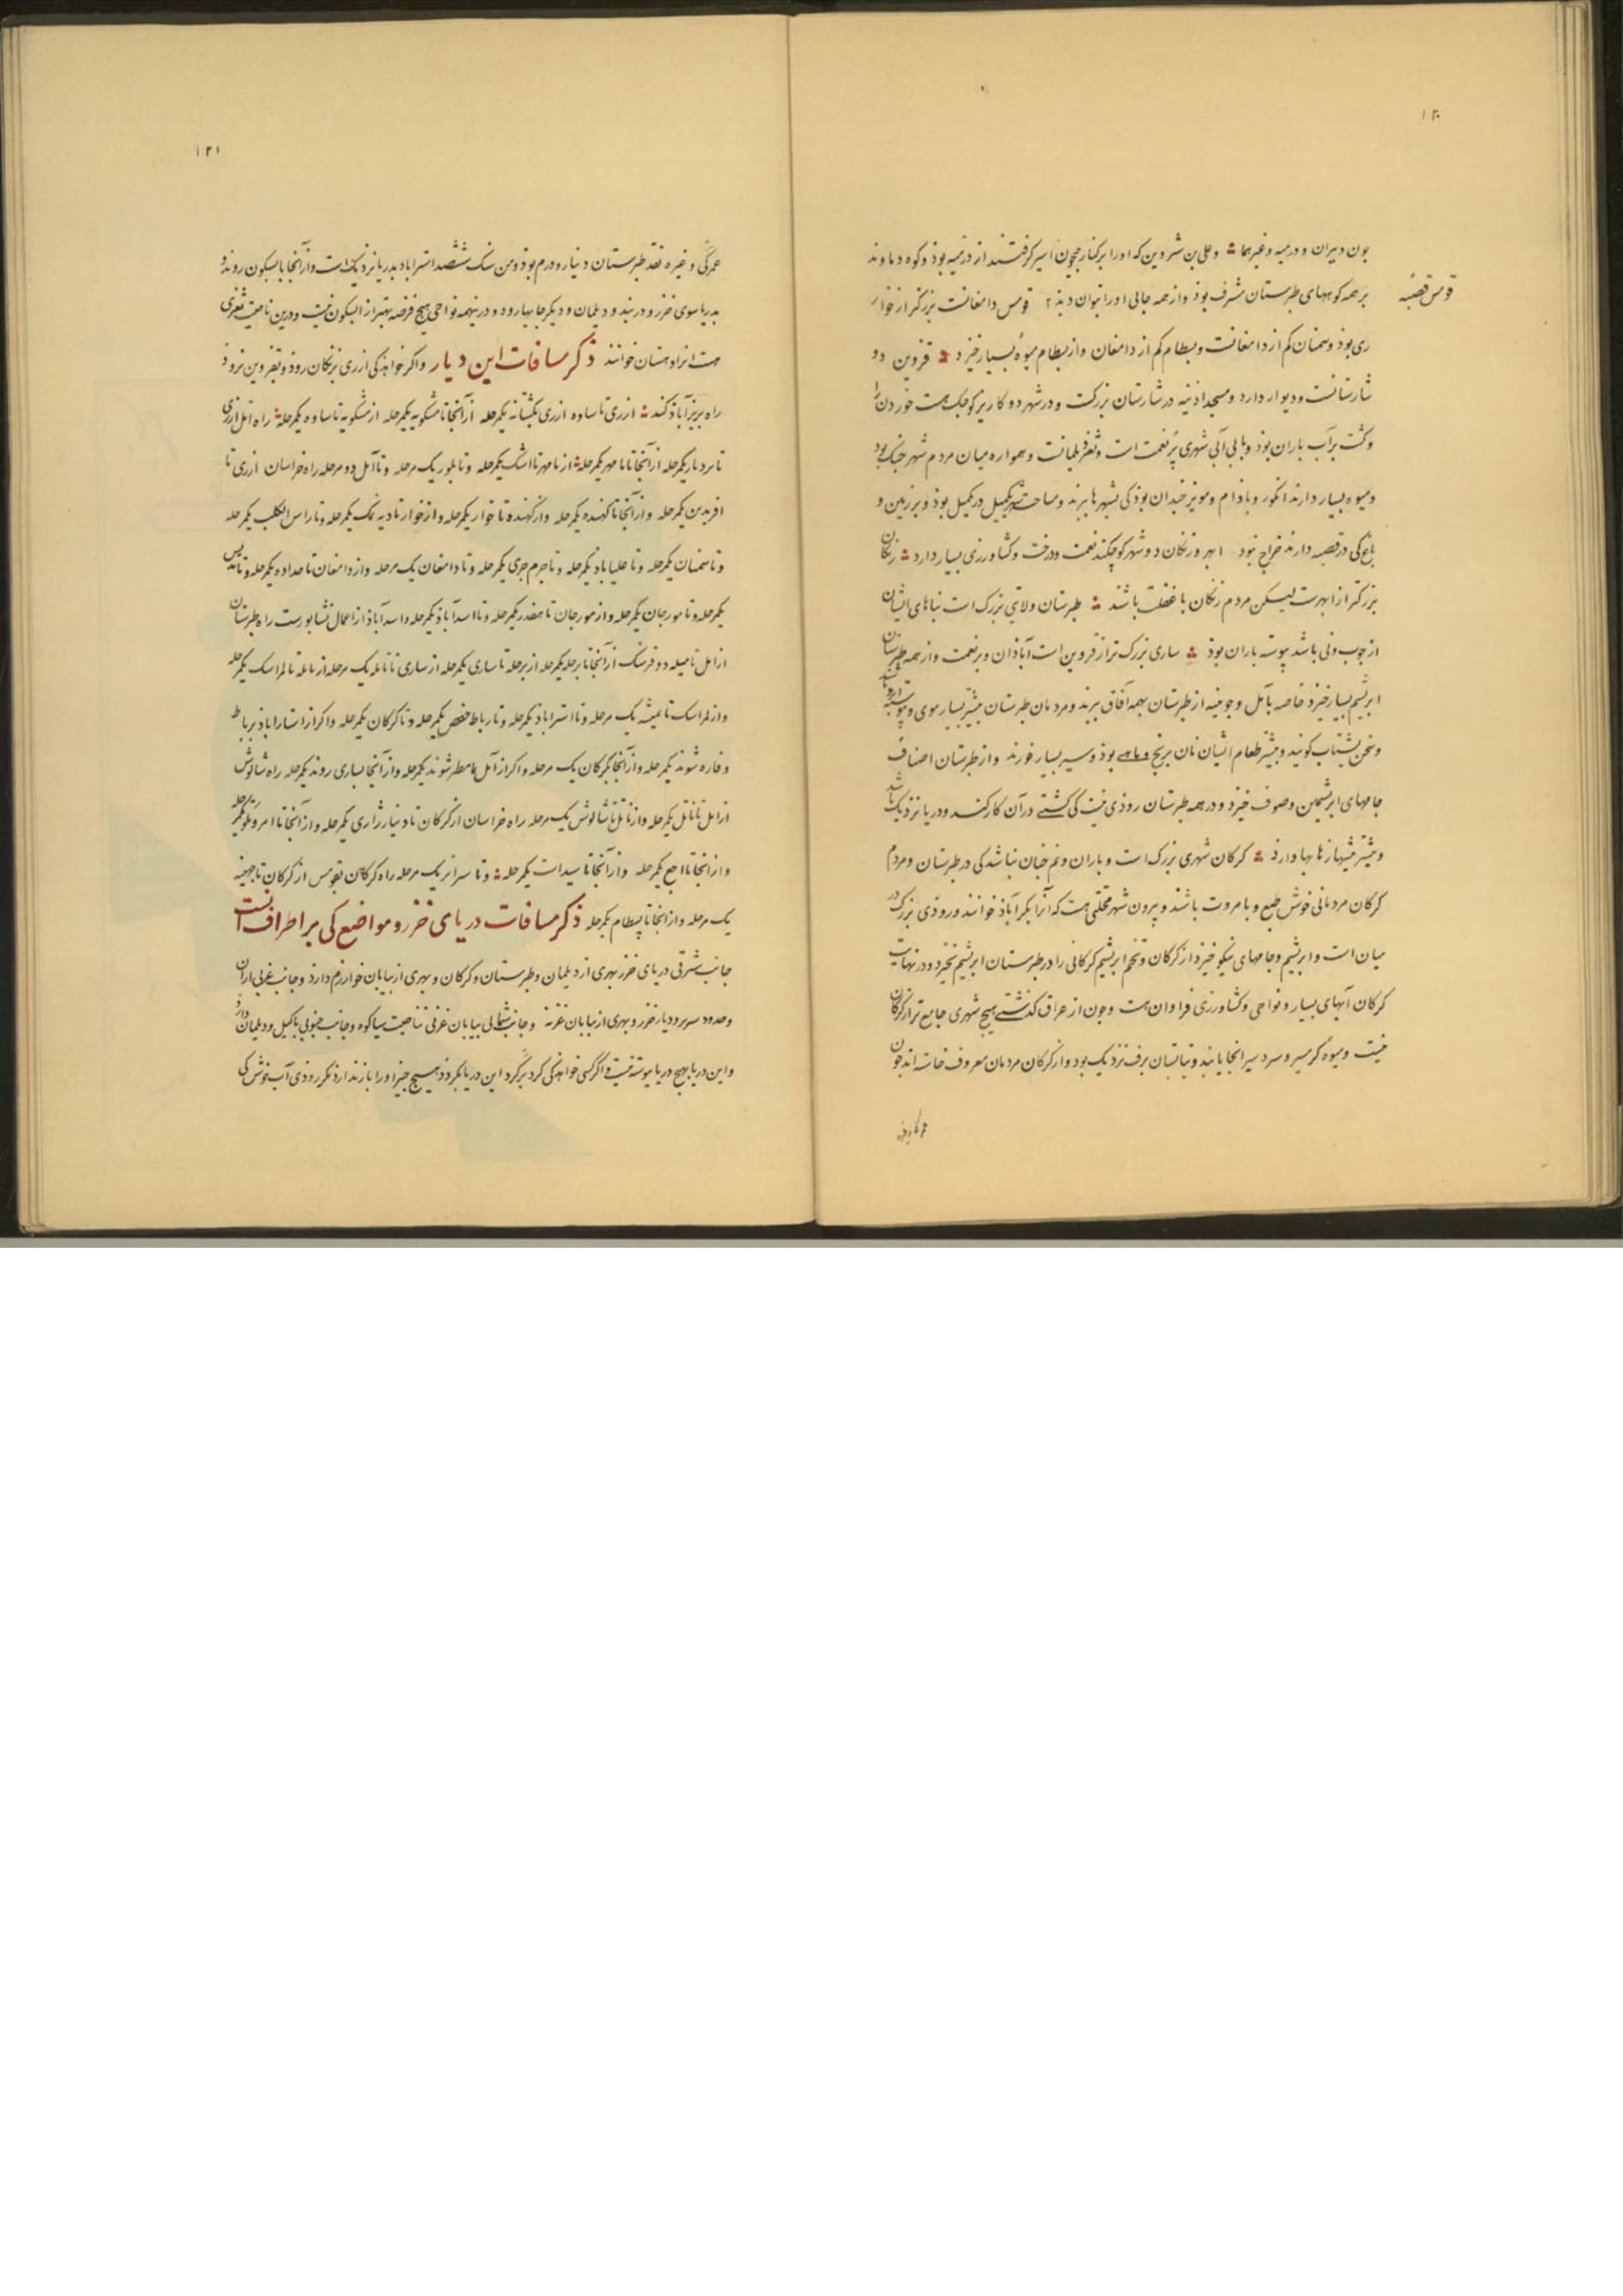 ۱۲۰
بون دیران و درمیه و غیرهما و علی بن شروین که اورا برکنار جیحون اسیر گرفتند از درمیه بوذ و کوه دماوند
قومس قصبهٔ
بر همه کوههای طبرستان مشرف بوذ و از همه جایی اورا بتوان دید ۲ قومس دامغانست بزرگتر از خوار
ری بوذ و سمنان کم از دامغانست و بسطام کم از دامغان و از بسطام میوهٔ بسیار خیزد قزوین دو
شارستانست و دیوار دارد و مسجد اذینه در شارستان بزرگست و در شهر دو کاریز کوجک هست خوردن را
و کشت برآب باران بوذ و با بی آبی شهری پر نعمت است و ثغر دیلمانست و همواره میان مردم شهر جنک بوذ
و میوه بسیار دارند انکور و باذام و مویز جندان بوذ کی بشهرها برند و مساحت شهر یکمیل در یکمیل بوذ و بر زمین و
باغ کی در قصبه دارند خراج نبوذ ابهر و زنکان دو شهر کوچکند نعمت و درخت و کشاورزی بسیار دارد زنکان
بزرکتر از ابهرست لیسکن مردم زنکان با غفلت باشند طبرستان ولایتی بزرک است بناهای ایشان
از جوب و نی باشد پیوسته باران بوذ ساری بزرک تر از قزوین است آباذان و پر نعمت و از همه طبرستان
ابریشم بسیار خیزذ خاصه بآمل و جوینیه از طبرستان بهمه آفاق برند و مردمان طبرستان بیشتر بسیار موی و پیوسته ابرو باشند
و سخن بشتاب کویند و بیشتر طعام ایشان نان برنج و ماهی بوذ و سیر بسیار خورند و از طبرستان اصناف
جامهای ابریشمین و صوف خیزد و در همه طبرستان روذی نیست کی کشتی درآن کار کند و دریا نزدیک باشد
و بیشتر بیشهاز نابها دارذ کرکان شهری بزرک است و باران و نم جنان نباشد کی در طبرستان و مردم
کرکان مردمانی خوش طبع و با مروت باشند و بیرون شهر محلتی هست که آنرا بکرآباذ خوانند و روذی بزرک در
میان است و ابریشم و جامهای نیکو خیزد از کرکان و تخم ابریشم کرکانی را در طبرستان ابریشم نخیزد و در نهایت
کرکان آبهای بسیار و نواحی و کشاورزی فراوان هست و جون از عراق کذشتی هیچ شهری جامع تر از کرکان
نیست و میوهٔ کرمسیر و سردسیر انجا یابند و بتابستان برف نزدیک بود و از کرکان مردمان معروف خاسته اند جون
۱۲۱
عمرکی و غیره نقد طبرستان دینار و درم بوذ و من سنک ششصد استراباد بدریا نزدیک است و از آنجا بابسکون روند و
بدریا سوی خزر و دربند و دیلمان و دیکر جایها رود و درینهمه نواحی هیچ فرضه بهتر از ابسکون نیست و درین ناحیت ثغری
هست انرا دهستان خوانند ذکر مسافات این دیار و اکر خواهذ کی از ری بزنکان روذ و بقزوین نروذ
راه بریزآباذ کند از ری تا ساوه از ری بکشتانه یکمرحله از آنجا تا مشکویه یکمرحله از مشکویه تا ساوه یکمرحله راه امل از ری
تا بردیار یکمرحله از آنجا تا نامهر یکمرحله از نامهر تا اشک یکمرحله و تا بلور یک مرحله و تا آمل دو مرحله راه خراسان از ری تا
افریدین یکمرحله و از آنجا تا کهنده یکمرحله و از کهنده تا خوار یکمرحله و از خوار تا دیه نمک یکمرحله و تا راس الکلب یکمرحله
و تا سمنان یکمرحله و تا علیاباد یکمرحله و تا جرم جوی یکمرحله و تا دامغان یک مرحله و از دامغان تا حداده یکمرحله و تا بدیس
یکمرحله و تا مورجان یکمرحله و از مورجان تا هفدر یکمرحله و تا اسدآباذ یکمرحله و اسدآباذ از اعمال نشابورست راه طبرستان
از امل تا میله دو فرسنک از آنجا تا برجله یکمرحله از برجله تا ساری یکمرحله از ساری تا نابله یک مرحله از نابله تا لمراسک یکمرحله
و از لمراسک تا میشه یک مرحله و تا استراباذ یکمرحله و تا رباط حفص یکمرحله و تا کرکان یکمرحله و اکر از استاراباذ برباط
وفاره شوند یکمرحله و از آنجا بکرکان یک مرحله و اکر از آمل بمامطر شوند یکمرحله و از آنجا بساری روند یکمرحله راه شالوش
از امل تا ناتل یکمرحله و از ناتل تا شالوش یک مرحله راه خراسان از کرکان تا دینار زاری یکمرحله و از آنجا تا امروتلو یکمرحله
و از انجا تا اجع یکمرحله و از آنجا تا سیدات یکمرحله و تا سبراین یک مرحله راه کرکان بقومس از کرکان تا جهینه
یک مرحله و از انجا تا بسطام یکمرحله ذکر مسافات دریای خزر و مواضع کی بر اطراف انست
جانب شرقی دریای خزر بهری از دیلمان و طبرستان و کرکان و بهری از بیابان خوارزم دارذ و جانب غربی اران
و حدود سریر و دیار خزر و بهری از بیابان غزیه و جانب شمالی بیابان غزنی بناحیت سیاکوه و جانب جنوبی باکیل و دیلمان دارد
و این دریا بهیچ دریا پیوسته نیست و اکر کسی خواهذ کی کرد بر کرد این دریا بکردد هیسچ جیز اورا باز ندارذ مکر روذی آب خوش کی